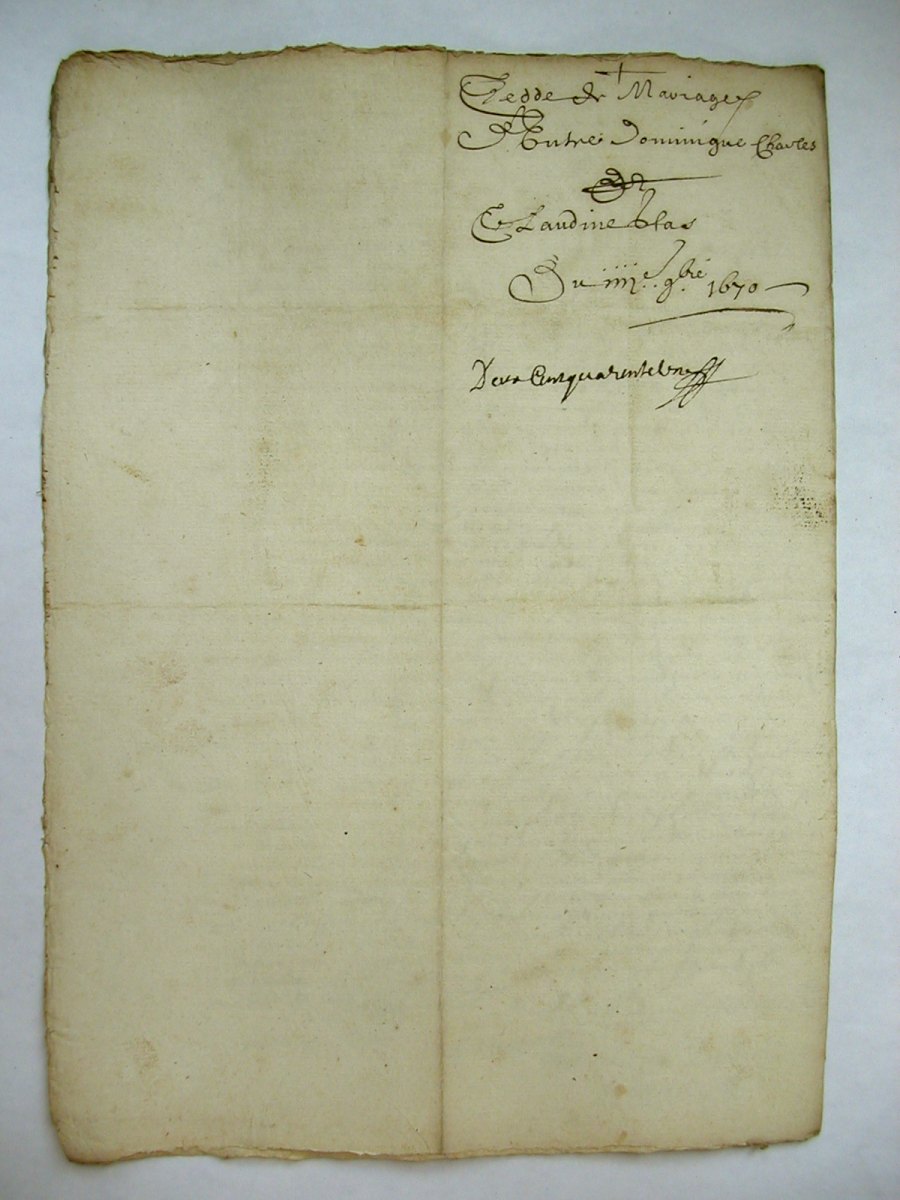 Cedde de Mariage
Entre Dominique Charles
Et
Claudine Blas
Du iiiie 9bre 1670
Deux Cent quarente Une